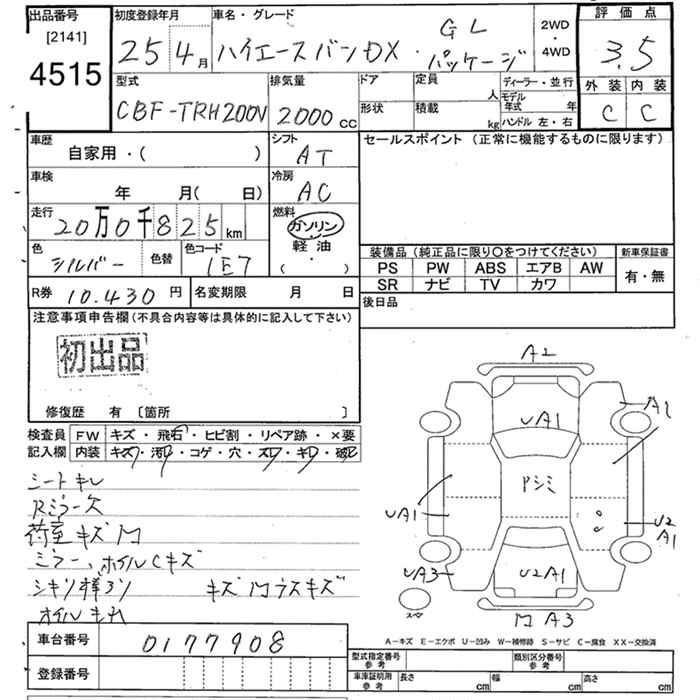 出品番号
[2141]
4515
初度登録年月
25 4月
車名・グレード
ハイエースバンDX・GLパッケージ
2WD
・
4WD
評価点
3.5
外装 内装
C C
型式
CBF-TRH200V
排気量
2000 CC
ドア
形状
定員 人
積載 kg
ディーラー・並行
モデル年式 年
ハンドル 左・右
車歴
自家用・( )
シフト
AT
セールスポイント (正常に機能するものに限ります)
車検
年 月( 日)
冷房
AC
走行
20万0千825km
燃料
ガソリン
軽油
・
( )
色
シルバー
色替
色コード
1E7
装備品 (純正品に限り〇をつけてください)
新車保証書
PS PW ABS エアB AW
SR ナビ TV カワ
有・無
R券 10.430円
名変期限 月 日
後日品
注意事項申告欄(不具合内容等は具体的に記入して下さい)
初出品
修復歴 有 〔箇所 〕
検査員
記入欄
FW キズ・飛石・ヒビ割・リペア跡・×要
内装 キズ・汚レ・コゲ・穴・スレ・キレ・破レ
シートキレ
Rミラー欠
荷室キズ凹
ミラー、ホイルCキズ
キズ凹ラスキズ
A2
UA1
A1
Pシミ
UA1
U2
A1
UA3
U2A1
スペア
凹A3
A-キズ E-エクボ U-凹み W-補修跡 S-サビ C-腐食 XX-交換済
車台番号 0177908
登録番号
型式指定番号
参考
類別区分番号
参考
車庫証明用
参考
長さ cm
幅 cm
高さ cm